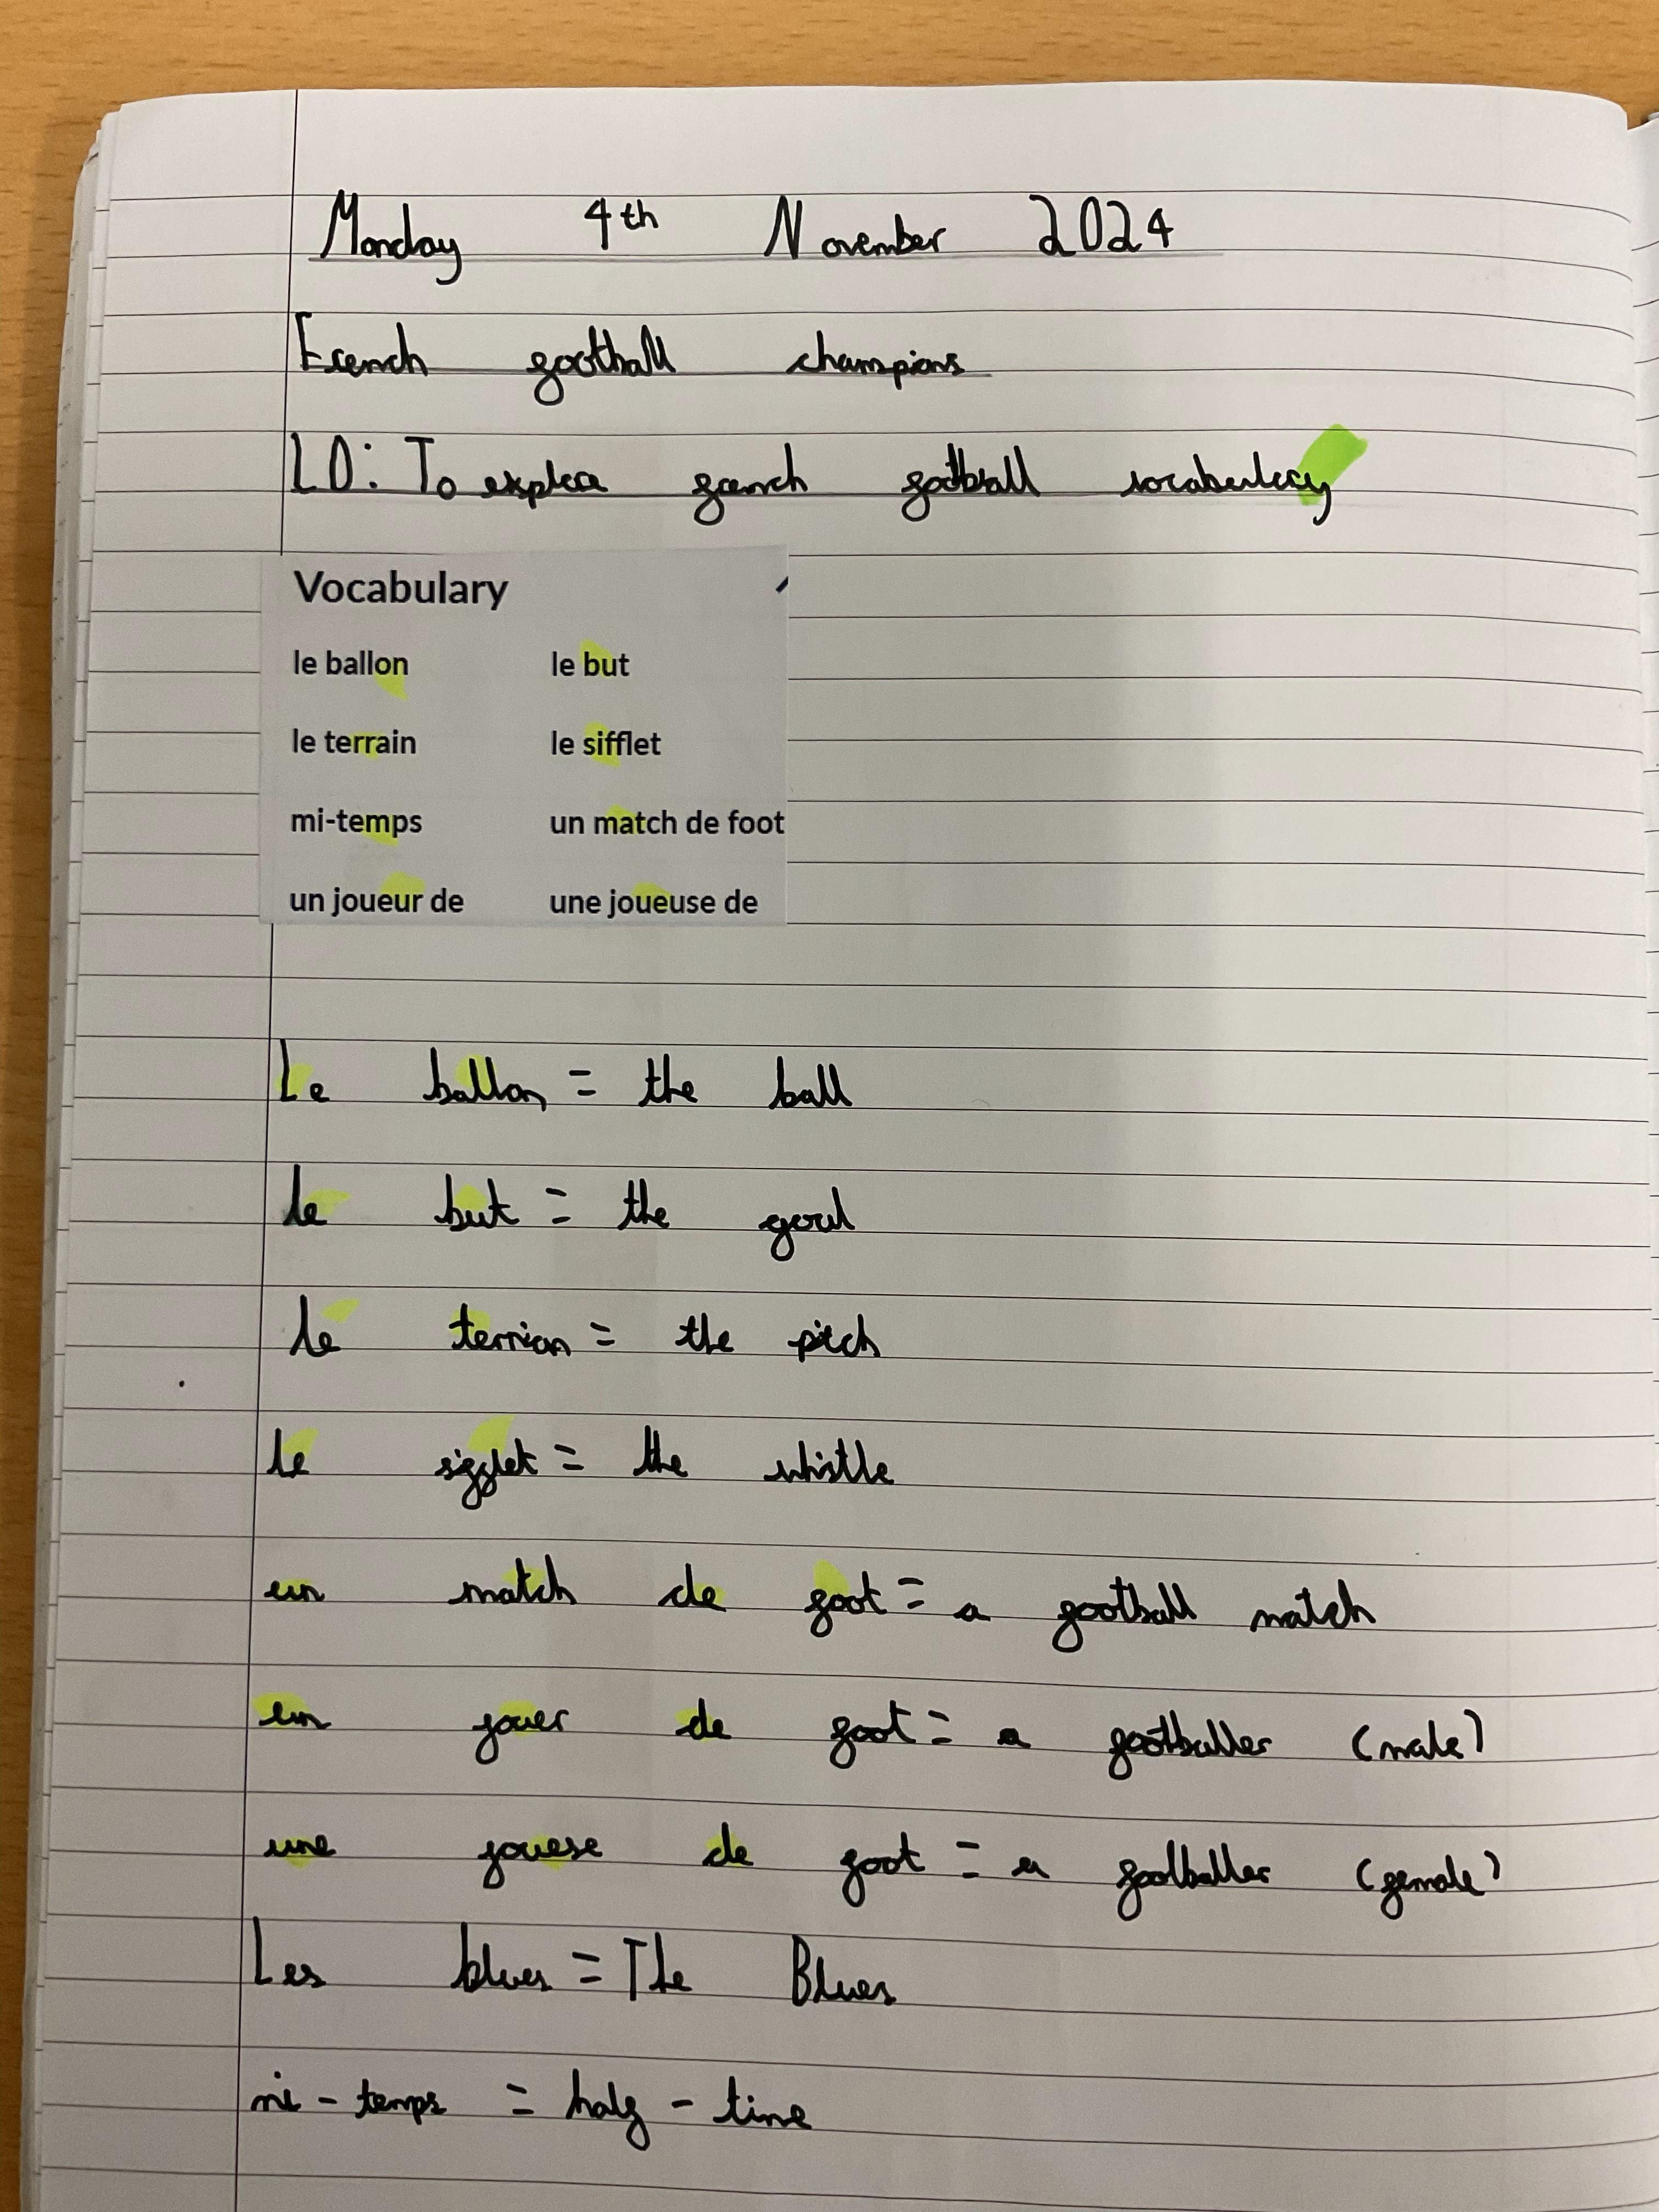 Monday 4th November 2024
French football champions
LO: To explea french football vocabulery
Vocabulary
le ballon le but
le terrain le sifflet
mi-temps un match de foot
un joueur de une joueuse de
Le ballon = the ball
le but = the goul
le terrian = the pitch
le sifflet = the whistle
un match de foot = a football match
un jouer de foot = a footballer (male)
une jouese de foot = a footballer (female)
Les blues = The Blues
mi - temps = half - time